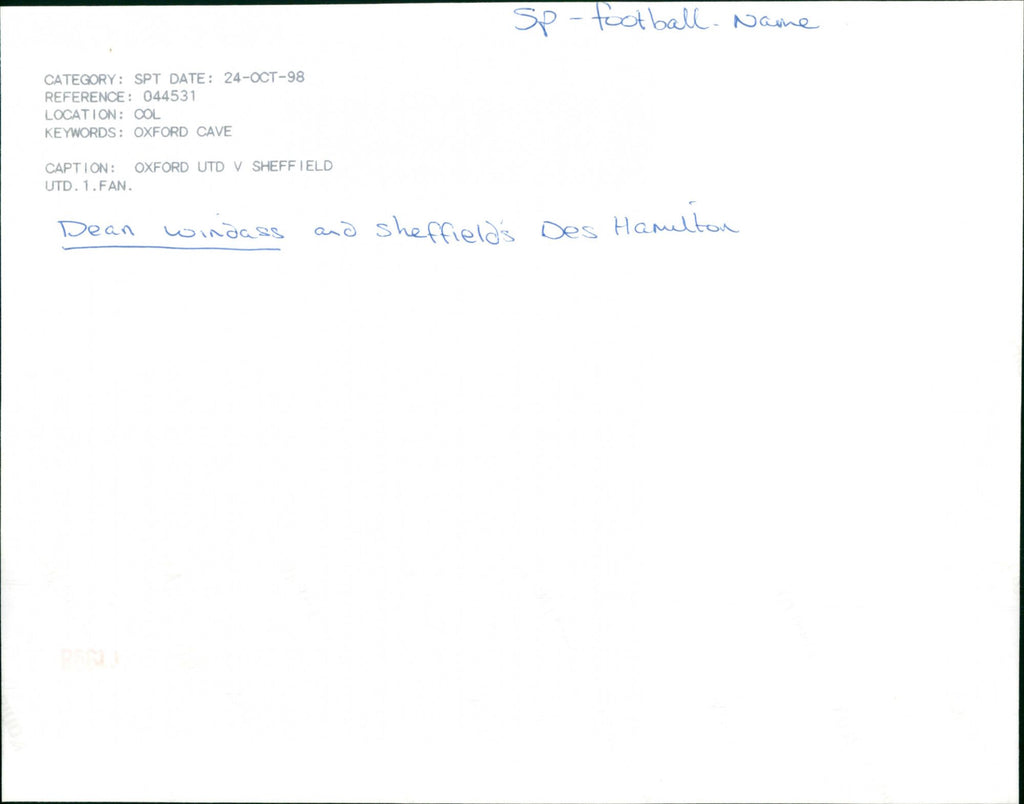 Sp - football - Name
CATEGORY: SPT DATE: 24-OCT-98
REFERENCE: 044531
LOCATION: COL
KEYWORDS: OXFORD CAVE
CAPTION: OXFORD UTD V SHEFFIELD
UTD.1.FAN.
Dean Windass and Sheffield's Des Hamilton